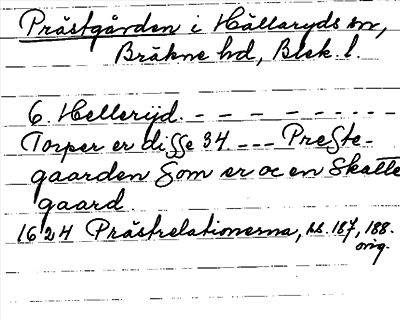 Prästgården i Hällaryds sn,
Bräkne hd, Blek. l.
6. Hellerijd. - - - - - - - - -
Torper er disse 34. --- Preste-
gaarden som er oc en Skatte
gaard.
1624 Prästrelationerna, bl. 187, 188.
orig.